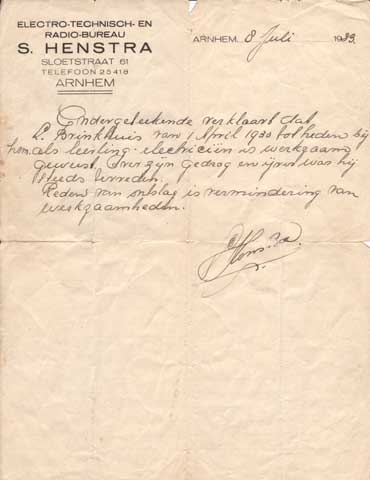 ELECTRO-TECHNISCH- EN
RADIO-BUREAU
S. HENSTRA
SLOETSTRAAT 61
TELEFOON 25418
ARNHEM
ARNHEM, 8 Juli 1933.
Ondergeteekende verklaart dat
Brinkhuis van 1 April 1930 tot heden bij
hem als leerling-electriciën is werkzaam
geweest. Over zijn gedrag en ijver was hij
steeds tevreden.
Reden van ontslag is vermindering van
werkzaamheden.
Henstra